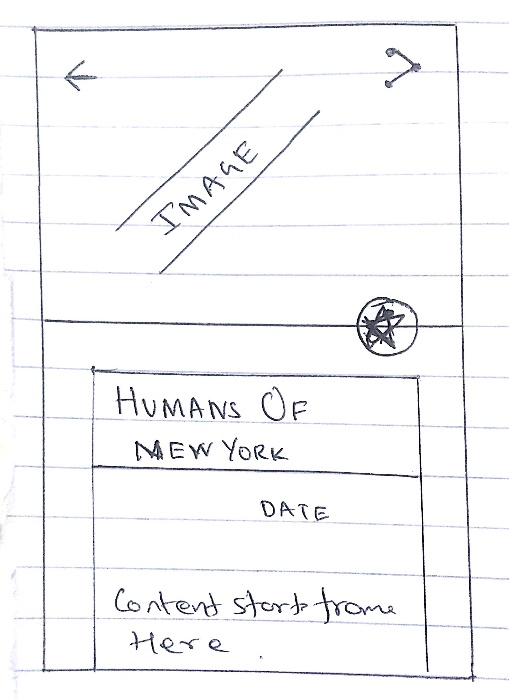 IMAGE
HUMANS OF
NEW YORK
DATE
Content starts frome
Here.